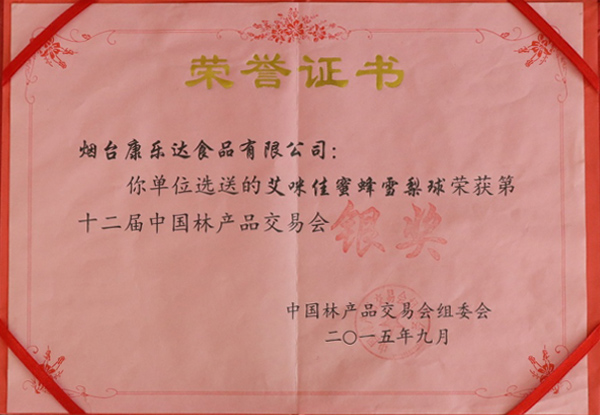 荣誉证书
烟台康乐达食品有限公司：
你单位选送的艾咪佳蜜蜂雪梨球荣获第
十二届中国林产品交易会 银奖
中国林产品交易会组委会
二〇一五年九月